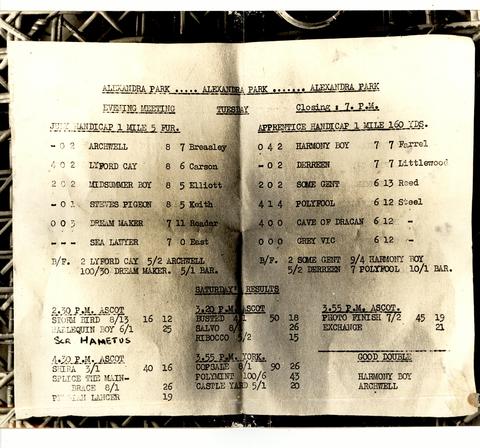 ALEXANDRA PARK ..... ALEXANDRA PARK ....... ALEXANDRA PARK
EVENING MEETING TUESDAY Closing : 7. P.M.
JULY HANDICAP 1 MILE 5 FUR.
- 0 2 ARCHWELL 8 7 Breasley
4 0 2 LYFORD CAY 8 6 Carson
2 0 2 MIDSUMMER BOY 8 5 Elliott
- 0 1 STEVES PIGEON 8 5 Keith
0 0 3 DREAM MAKER 7 11 Reader
- - - SEA LAWYER 7 0 East
B/F. 2 LYFORD CAY 5/2 ARCHWELL
100/30 DREAM MAKER. 5/1 BAR.
APPRENTICE HANDICAP 1 MILE 160 YDS.
0 4 2 HARMONY BOY 7 7 Farrel
- 0 2 DERREEN 7 7 Littlewood
2 0 2 SOME GENT 6 13 Reed
4 1 4 POLYFOOL 6 12 Steel
4 0 0 CAVE OF DRACAN 6 12 -
0 0 0 GREY VIC 6 12 -
B/F. 2 SOME GENT 9/4 HARMONY BOY
5/2 DERREEN 7 POLYFOOL 10/1 BAR.
SATURDAY'S RESULTS
2.30 P.M. ASCOT
STORM BIRD 8/13 16 12
HARLEQUIN BOY 6/1 25
SCR HAMETUS
3.20 P.M. ASCOT
BUSTED 4/1 50 18
SALVO 8/1 26
RIBOCCO 5/2 15
3.55 P.M. ASCOT.
PHOTO FINISH 7/2 45 19
EXCHANGE 21
4.30 P.M. ASCOT
SHIRA 3/1 40 16
SPLICE THE MAIN-
BRACE 8/1 26
LANCER 19
3.55 P.M. YORK.
COPSALE 8/1 90 26
POLYMINT 100/6 43
CASTLE YARD 5/1 20
GOOD DOUBLE
HARMONY BOY
ARCHWELL